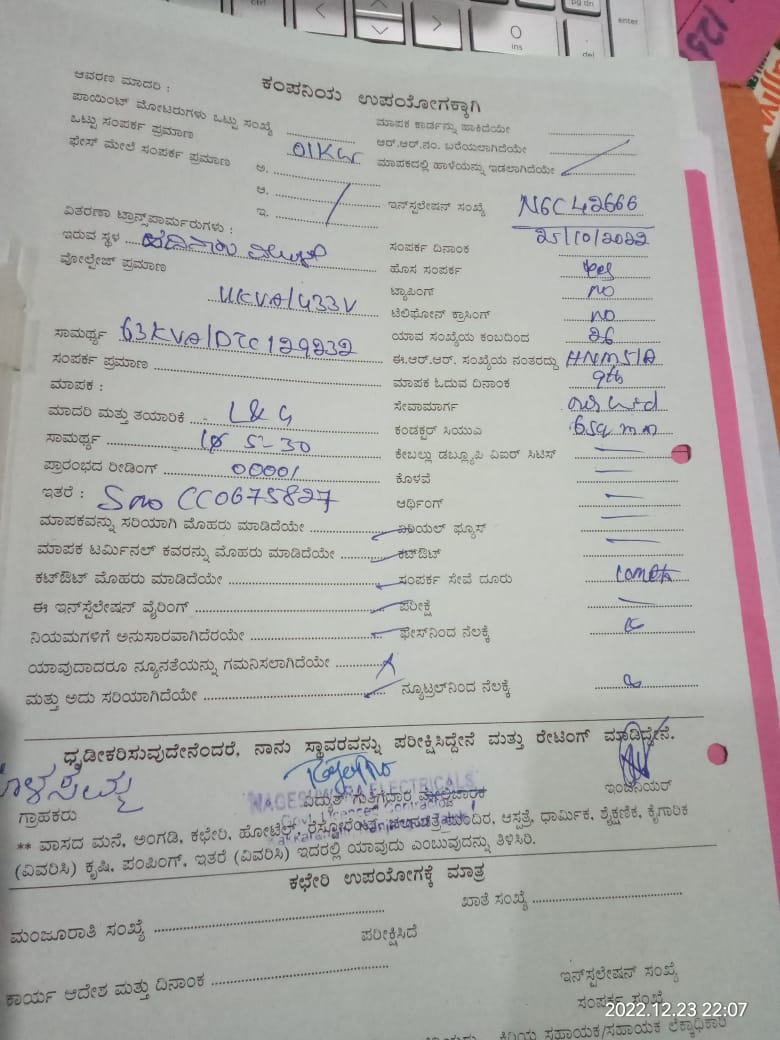 ಕಂಪನಿಯ ಉಪಯೋಗಕ್ಕಾಗಿ
ಆವರಣ ಮಾದರಿ :
ಪಾಯಿಂಟ್ ಮೋಟರುಗಳು ಒಟ್ಟು ಸಂಖ್ಯೆ
ಒಟ್ಟು ಸಂಪರ್ಕ ಪ್ರಮಾಣ 01KW
ಫೇಸ್ ಮೇಲೆ ಸಂಪರ್ಕ ಪ್ರಮಾಣ ಅ.
ಆ.
ಇ.
ವಿತರಣಾ ಟ್ರಾನ್ಸ್‌ಪಾರ್ಮರುಗಳು :
ಇರುವ ಸ್ಥಳ
ವೋಲ್ಟೇಜ್ ಪ್ರಮಾಣ
11KVA/433V
ಸಾಮರ್ಥ್ಯ 63KVA/DTC 129232
ಸಂಪರ್ಕ ಪ್ರಮಾಣ
ಮಾಪಕ :
ಮಾದರಿ ಮತ್ತು ತಯಾರಿಕೆ L&G
ಸಾಮರ್ಥ್ಯ 5-30
ಪ್ರಾರಂಭದ ರೀಡಿಂಗ್ 00001
ಇತರೆ : Sno CC0675827
ಮಾಪಕವನ್ನು ಸರಿಯಾಗಿ ಮೊಹರು ಮಾಡಿದೆಯೇ
ಮಾಪಕ ಟರ್ಮಿನಲ್ ಕವರನ್ನು ಮೊಹರು ಮಾಡಿದೆಯೇ
ಕಟ್‌ಔಟ್ ಮೊಹರು ಮಾಡಿದೆಯೇ
ಈ ಇನ್‌ಸ್ಟೆಲೇಷನ್ ವೈರಿಂಗ್
ನಿಯಮಗಳಿಗೆ ಅನುಸಾರವಾಗಿದೆರಯೇ
ಯಾವುದಾದರೂ ನ್ಯೂನತೆಯನ್ನು ಗಮನಿಸಲಾಗಿದೆಯೇ
ಮತ್ತು ಅದು ಸರಿಯಾಗಿದೆಯೇ
ಮಾಪಕ ಕಾರ್ಡನ್ನು ಹಾಕಿದೆಯೇ
ಆರ್.ಆರ್.ನಂ. ಬರೆಯಲಾಗಿದೆಯೇ
ಮಾಪಕದಲ್ಲಿ ಹಾಳೆಯನ್ನು ಇಡಲಾಗಿದೆಯೇ
ಇನ್‌ಸ್ಟಲೇಷನ್ ಸಂಖ್ಯೆ NGC42666
ಸಂಪರ್ಕ ದಿನಾಂಕ 25/10/2022
ಹೊಸ ಸಂಪರ್ಕ yes
ಟ್ಯಾಪಿಂಗ್ no
ಟೆಲಿಫೋನ್ ಕ್ರಾಸಿಂಗ್ no
ಯಾವ ಸಂಖ್ಯೆಯ ಕಂಬದಿಂದ 26
ಈ.ಆರ್.ಆರ್. ಸಂಖ್ಯೆಯ ನಂತರದ್ದು
ಮಾಪಕ ಓದುವ ದಿನಾಂಕ 9th
ಸೇವಾಮಾರ್ಗ
ಕಂಡಕ್ಟರ್ ಸಿಯುಎ 6sq mm
ಕೇಬಲ್ಲು ಡಬ್ಲ್ಯೂಪಿ ವಿಐರ್ ಸಿಟಿಸ್
ಕೊಳವೆ
ಆರ್ಥಿಂಗ್
ಏರಿಯಲ್ ಫ್ಯೂಸ್
ಕಟ್‌ಔಟ್
ಸಂಪರ್ಕ ಸೇವೆ ದೂರು
ಪರೀಕ್ಷೆ
ಫೇಸ್‌ನಿಂದ ನೆಲಕ್ಕೆ
ನ್ಯೂಟ್ರಲ್‌ನಿಂದ ನೆಲಕ್ಕೆ
ಧೃಡೀಕರಿಸುವುದೇನೆಂದರೆ, ನಾನು ಸ್ಥಾವರವನ್ನು ಪರೀಕ್ಷಿಸಿದ್ದೇನೆ ಮತ್ತು ರೇಟಿಂಗ್ ಮಾಡಿದ್ದೇನೆ.
NAGESHWARA ELECTRICALS
ಗ್ರಾಹಕರು ವಿದ್ಯುತ್ ಗುತ್ತಿಗೆದಾರ ಮೇಲ್ವಿಚಾರಕ ಇಂಜಿನಿಯರ್
** ವಾಸದ ಮನೆ, ಅಂಗಡಿ, ಕಛೇರಿ, ಹೋಟೆಲ್, ರೆಸ್ಟೋರೆಂಟ್, ಮಂದಿರ, ಆಸ್ಪತ್ರೆ, ಧಾರ್ಮಿಕ, ಶೈಕ್ಷಣಿಕ, ಕೈಗಾರಿಕ
(ವಿವರಿಸಿ) ಕೃಷಿ, ಪಂಪಿಂಗ್, ಇತರೆ (ವಿವರಿಸಿ) ಇದರಲ್ಲಿ ಯಾವುದು ಎಂಬುವುದನ್ನು ತಿಳಿಸಿರಿ.
ಕಛೇರಿ ಉಪಯೋಗಕ್ಕೆ ಮಾತ್ರ
ಮಂಜೂರಾತಿ ಸಂಖ್ಯೆ ಖಾತೆ ಸಂಖ್ಯೆ
ಪರೀಕ್ಷಿಸಿದೆ
ಕಾರ್ಯ ಆದೇಶ ಮತ್ತು ದಿನಾಂಕ
ಇನ್‌ಸ್ಟಲೇಷನ್ ಸಂಖ್ಯೆ
ಸಂಪರ್ಕ ಸಂಖ್ಯೆ
2022.12.23 22:07
ಕಿರಿಯ ಸಹಾಯಕ/ಸಹಾಯಕ ಲೆಕ್ಕಾಧಿಕಾರಿ